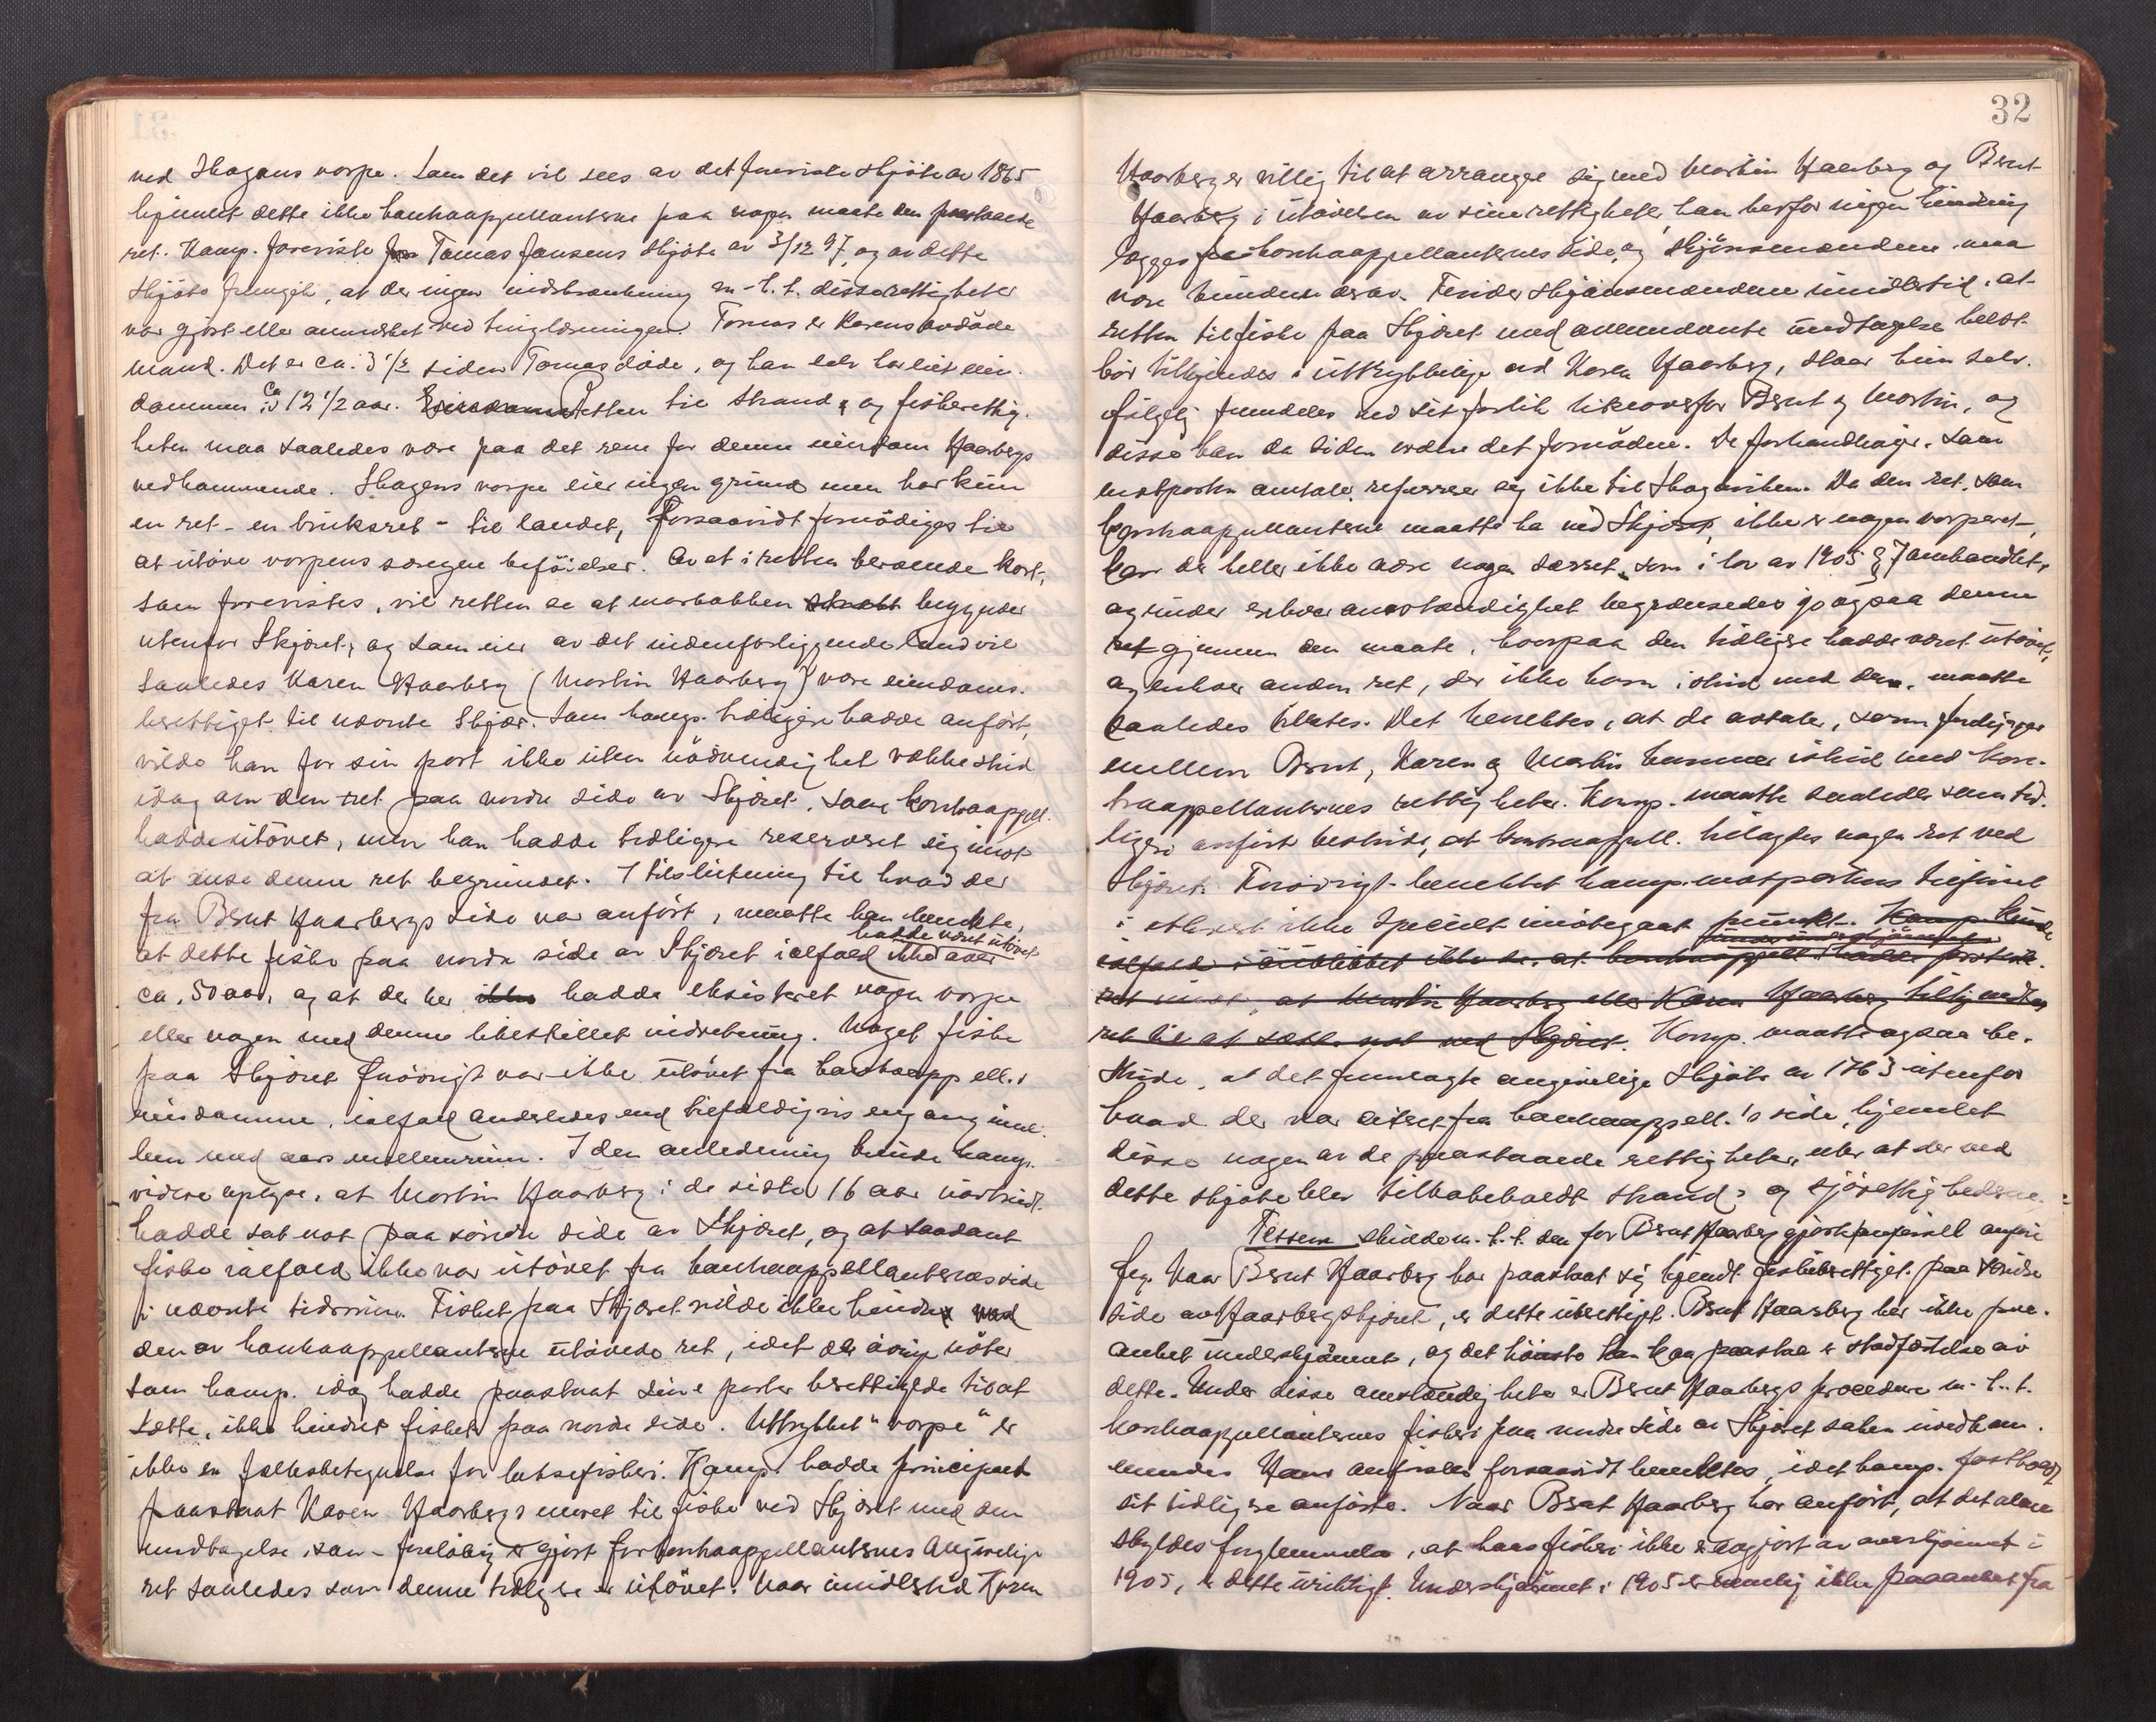 ved Skagens vorpe. Som det vil sees av det foreviste skjöte av 1865
hjemlet dette ikke kontraappellanterne paa nogen maate den paastaaede
ret. Komp. foreviste Tomas Jansens skjöte av 3/12 97, og av dette
skjöte fremgik, at der ingen indskrænkning m.h.t. disse rettigheter
var gjort eller anmerket ved tinglæsningen. Tomas er Karens avdöde
mand. Det er ca. 3 1/2 siden Tomas döde, og han selv har eiet eien-
dommen i ca 12 1/2 aar. Retten til strand og fiskerettig-
heten maa saaledes være paa det rene for denne eiendom Haarbergs
vedkommende. Skagens vorpe eier ingen grund men har kun
en ret - en bruksret - til landet, forsaavidt fornödiges til
at utöve vorpens særegne beföielser. Av et i retten beroende kart,
som forevistes, vil retten se at marbakken begynder
utenfor Skjæret, og som eier av det indenforliggende land vil
saaledes Karen Haarberg (Martin Haarberg) være eiendoms-
berettiget til nævnte Skjær. Som komp. tidligere hadde anfört,
vilde han for sin part ikke uten nödvendighet vække strid
idag om den ret paa nordre side av Skjæret, som kontraappell.
hadde utövet, men han hadde tidligere reserveret sig imot
at anse denne ret begrundet. I tilslutning til hvad der
fra Bernt Haarbergs side var anfört, maatte han benekte,
at dette fiske paa nordre side av Skjæret ialfald ikke hadde været utövet over
ca. 50 aar, og at der her ikke hadde eksisteret nogen vorpe
eller nogen med denne likestillet indretning. Noget fiske
paa Skjæret forövrigt var ikke utövet fra kontraappell.s
eiendomme, ialfald anderledes end tilfældigvis en gang imel-
lem med aars mellemrum. I den anledning kunde komp.
videre oplyse, at Martin Haarberg i de sidste 16 aar uavbrudt
hadde sat not paa söndre side av Skjæret, og at saadant
fiske ialfald ikke var utövet fra kontraappellanternes side
i nævnte tidsrum. Fisket paa Skjæret vilde ikke hindre
den av kontraappellanterne utövede ret, idet de övrige nöter
som komp. idag hadde paastaat sine parter berettigede til at
sætte, ikke hindret fisket paa nordre side. Uttrykket "vorpe" er
ikke en fællesbetegnelse for laksefiskeri. Komp. hadde principalt
paastaat Karen Haarbergs eneret til fiske ved Skjæret med den
undtagelse, som forelöbig er gjort for kontraappellanternes angivelige
ret saaledes som denne tidligere er utövet. Naar imidlertid Karen

32
Haarberg er villig til at arrangere sig med Martin Haarberg og Bernt
Haarberg i utövelsen av sine rettigheter, kan herfor ingen hindring
lægges fra kontraappellanternes side, og skjönsmændene maa
være bundne derav. Finder skjönsmændene imidlertid, at
retten til fiske paa Skjæret med anmeldte undtagelse helst
bör tilkjendes i uttrykkelige ord Karen Haarberg, staar hun selv-
fölgelig fremdeles ved sit forlik likeoverfor Bernt og Martin, og
disse kan da siden ordne det fornödne. De forhandlinger, som
motparten omtale, refererer sig ikke til Skagviken. Da den ret, som
kontraappellanterne maatte ha ved Skjæret, ikke er nogen vorperet,
kan der heller ikke være nogen særret, som i lov av 1905 § 7 omhandlet,
og under enhver omstændighet begrænsedes jo ogsaa denne
ret gjennem den maate, hvorpaa den tidligere hadde været utövet,
og enhver anden ret, der ikke kom i strid med den, maatte
saaledes tillates. Det benektes, at de avtaler, som foreligger
mellem Bernt, Karen og Martin kommer i strid med kon-
traappellanternes rettigheter. Komp. maatte saaledes som tid-
ligere anfört bestride, at kontraappell. tilagdes nogen ret ved
Skjæret. Forövrigt benektet komp. motpartens tilförsel
i ethvert ikke specielt imötegaat punkt. Komp. kunde
ialfald i öieblikket ikke se, at kontraappell. under underskjönnet hadde protest-
ret imot, at Martin Haarberg eller Karen Haarberg tilkjendtes
ret til at sætte not ved Skjæret. Komp. maatte ogsaa be-
stride, at det fremlagte angivelige skjöte av 1763 utenfor
hvad der var citeret fra kontraappell.'s side, hjemlet
disse nogen av de paastaaede rettigheter, eller at der ved
dette skjöte blev tilbakeholdt strand- og sjörettighederne.
Tessem skulde m.h.t. den for Bernt Haarberg gjorte tilförsel anföre
Jeg. Naar Bernt Haarberg har paastaat sig kjendt fiskeberettiget paa söndre
side av Haarbergskjæret, er dette uberettiget. Bernt Haarberg har ikke paa-
anket underskjönnet, og det höieste han kan paastaa er stadfæstelse av
dette. Under disse omstændigheter er Bernt Haarbergs procedure m.h.t.
kontraappellanternes fiskeri paa nordre side av Skjæret saken uvedkom-
mende. Hans anförsler forsaavidt benektes, idet komp. fastholdt
sit tidligere anförte. Naar Bernt Haarberg har anfört, at det alene
skyldes forglemmelse, at hans fiskeri ikke er avgjort av overskjönnet i
1905, er dette uriktigt. Underskjönnet i 1905 er nemlig ikke paaanket fra